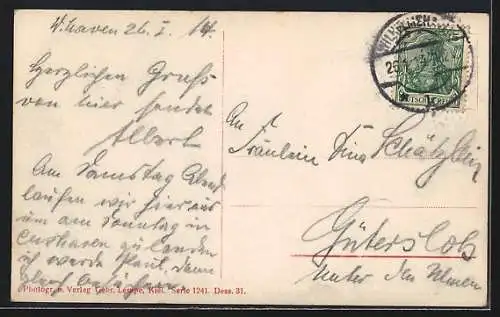 W.haven 26. I. 14.
Herzlichen Gruß
von hier sendet
Albert
Am Samstag Abend
laufen wir hier aus
um am Sonntag in
Cuxhaven zu landen
ich werde
An
Fräulein Tina
Gütersloh
Unter den Ulmen
Photogr. u. Verlag Gebr. Lempe, Kiel. Serie 1241. Dess. 31.